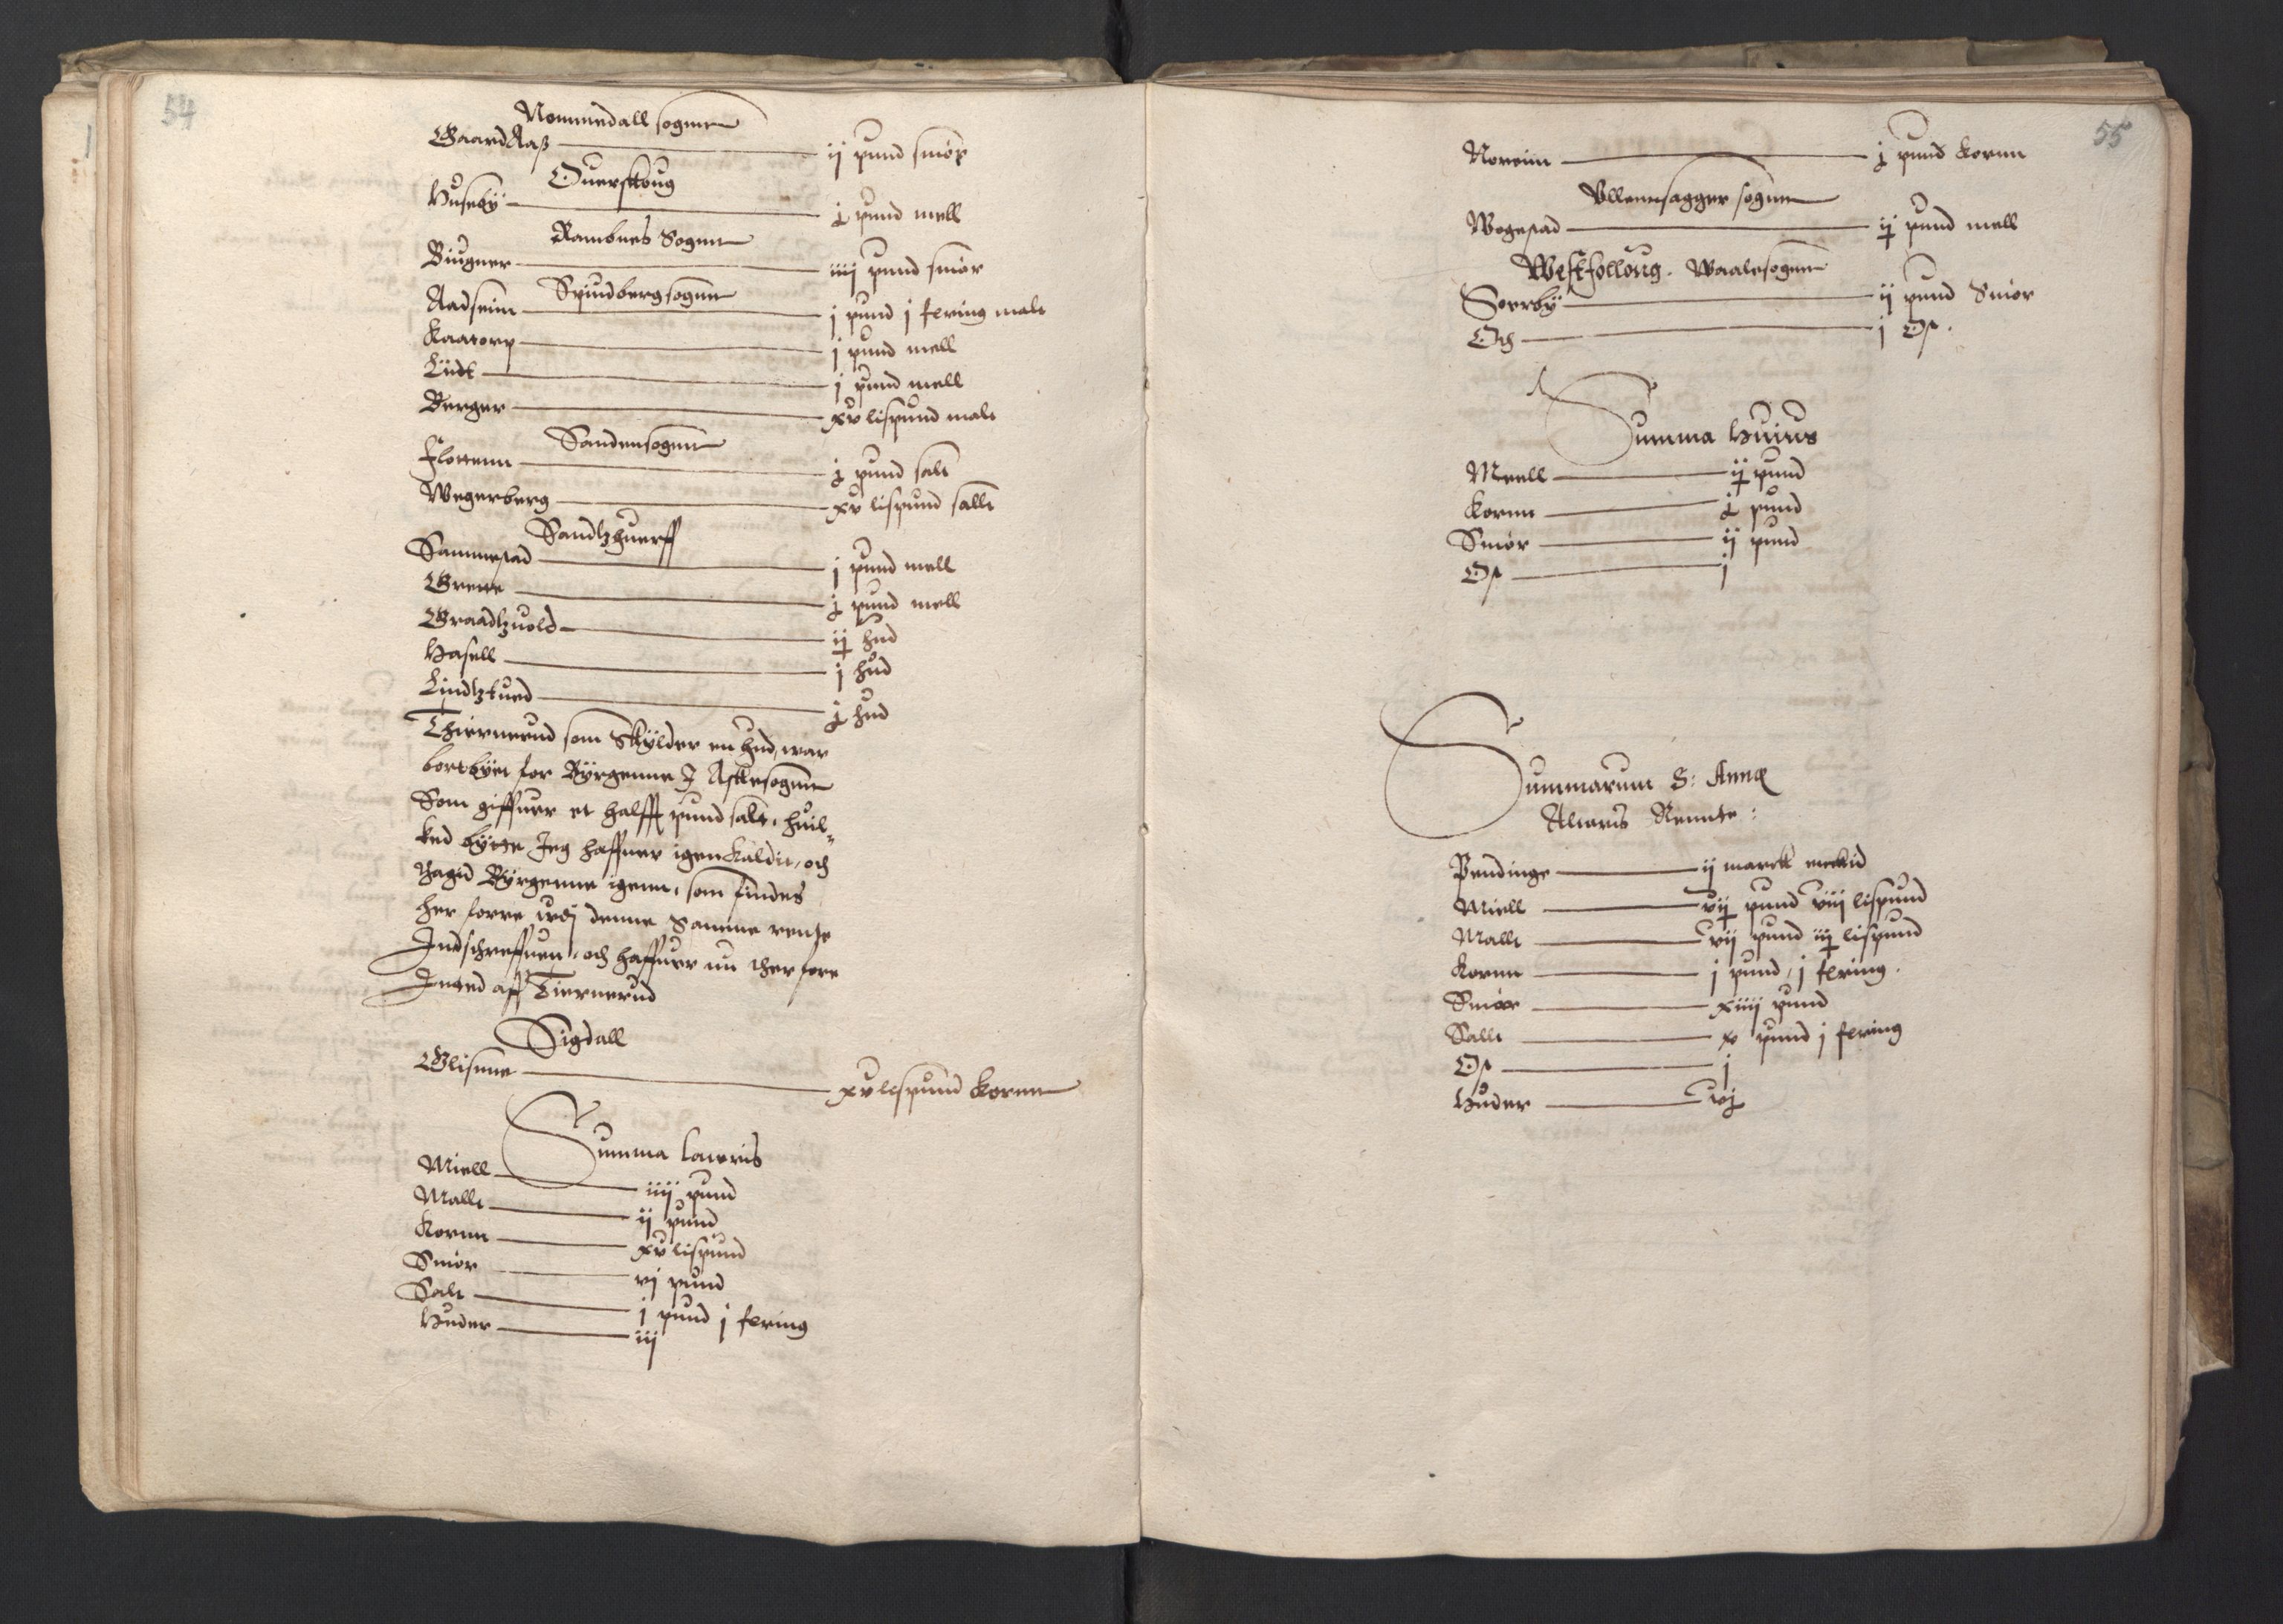 54
Nommedall sognn
GaardAaß — ij pund smör
Ouerskoug
Huseby — j pund mell
Rambnes Sognn
Biugner — iiij pund smör
Spindberg sognn
Aadseim — j pund j fering malt
Kaatorp — j pund mell
Lijdt — j pund mell
Berger — xv lispund malt
Sandensognn
Flottenn — j pund salt
Wegerberg — xv lispund sallt
Sandtzhuerff
Sammestad — j pund mell
Grette — j pund mell
Graadtzuold — ij hud
Hasell — j hud
Lijndtzkued — j hud
Thiernerud som Skylder en hud, war
bortbytt for Byrgenne J Askesognn
Som giffuer et halfft pund salt, huil-
ked bytte Jeg haffuer igenkaldit, och
thagid Byrgenne igenn, som findes
her forre udj denne Samme rente
Jndschreffuen, och haffuer nu ther fore
Jnted aff Tiernerud
Sigdall
Glismne — xv lispund Kornn
Summa lateris
Miell — iiij pund
Mallt — ij pund
Kornn — xv lispund
Smör — vj pund
Salt — j pund j fering
Huder — iij
55
Noreim — j pund kornn
Ullennsagger sognn
Wogestad — ij pund mell
Westfolloug. Waalesognn
Soerby — ij pund Smör
Och — j Ost.
Summa Huius
Meell — ij pund
Kornn — j pund
Smör — ij pund
Ost — j
Summarum S: Annæ
Altaris Rennte:
Pendinge — ij marck
Miell — vij pund viij lispund
Mallt — vij pund iij lispund
Kornn — j pund, j fering.
Smör — xiiij pund
Sallt — x pund j fering
Ost — j
Huder — vj